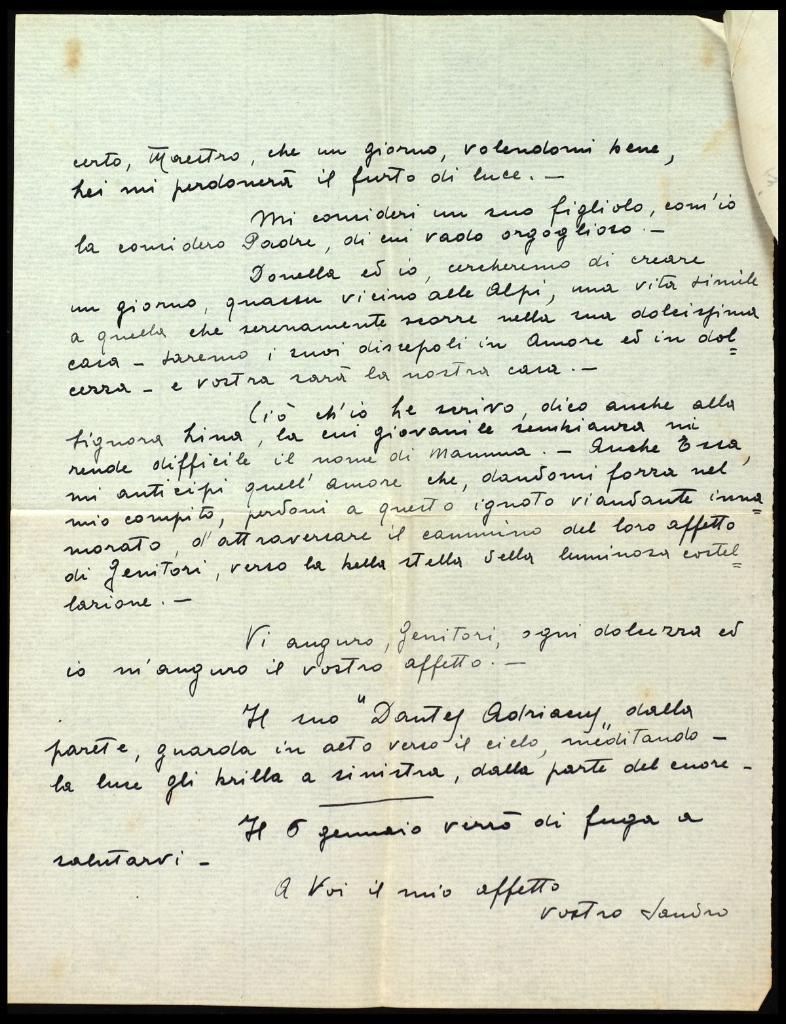 certo, Maestro, che un giorno, volendomi bene,
Lei mi perdonerà il furto di luce. —
Mi consideri un suo figliolo, com'io
la considero Padre, di cui vado orgoglioso. —
Donella ed io, cercheremo di creare
un giorno, quassù vicino alle Alpi, una vita simile
a quella che serenamente scorre nella sua dolcissima
casa — saremo i suoi discepoli in Amore ed in dol=
cezza — e vostra sarà la nostra casa. —
Ciò ch'io Le scrivo, dico anche alla
Signora Lina, la cui giovanile sembianza mi
rende difficile il nome di Mamma. — Anche Essa,
mi anticipi quell'amore che, dandomi forza nel
mio compito, perdoni a questo ignoto viandante inna=
morato, d'attraversare il cammino del loro affetto
di Genitori, verso la bella stella della luminosa costel=
lazione. —
Vi auguro, Genitori, ogni dolcezza ed
io m'auguro il vostro affetto. —
Il suo "Dantes Adriacus" dalla
parete, guarda in alto verso il cielo, meditando —
la luce gli brilla a sinistra, dalla parte del cuore —
Il 6 gennaio verrò di fuga a
salutarvi —
A Voi il mio affetto
vostro Sandro